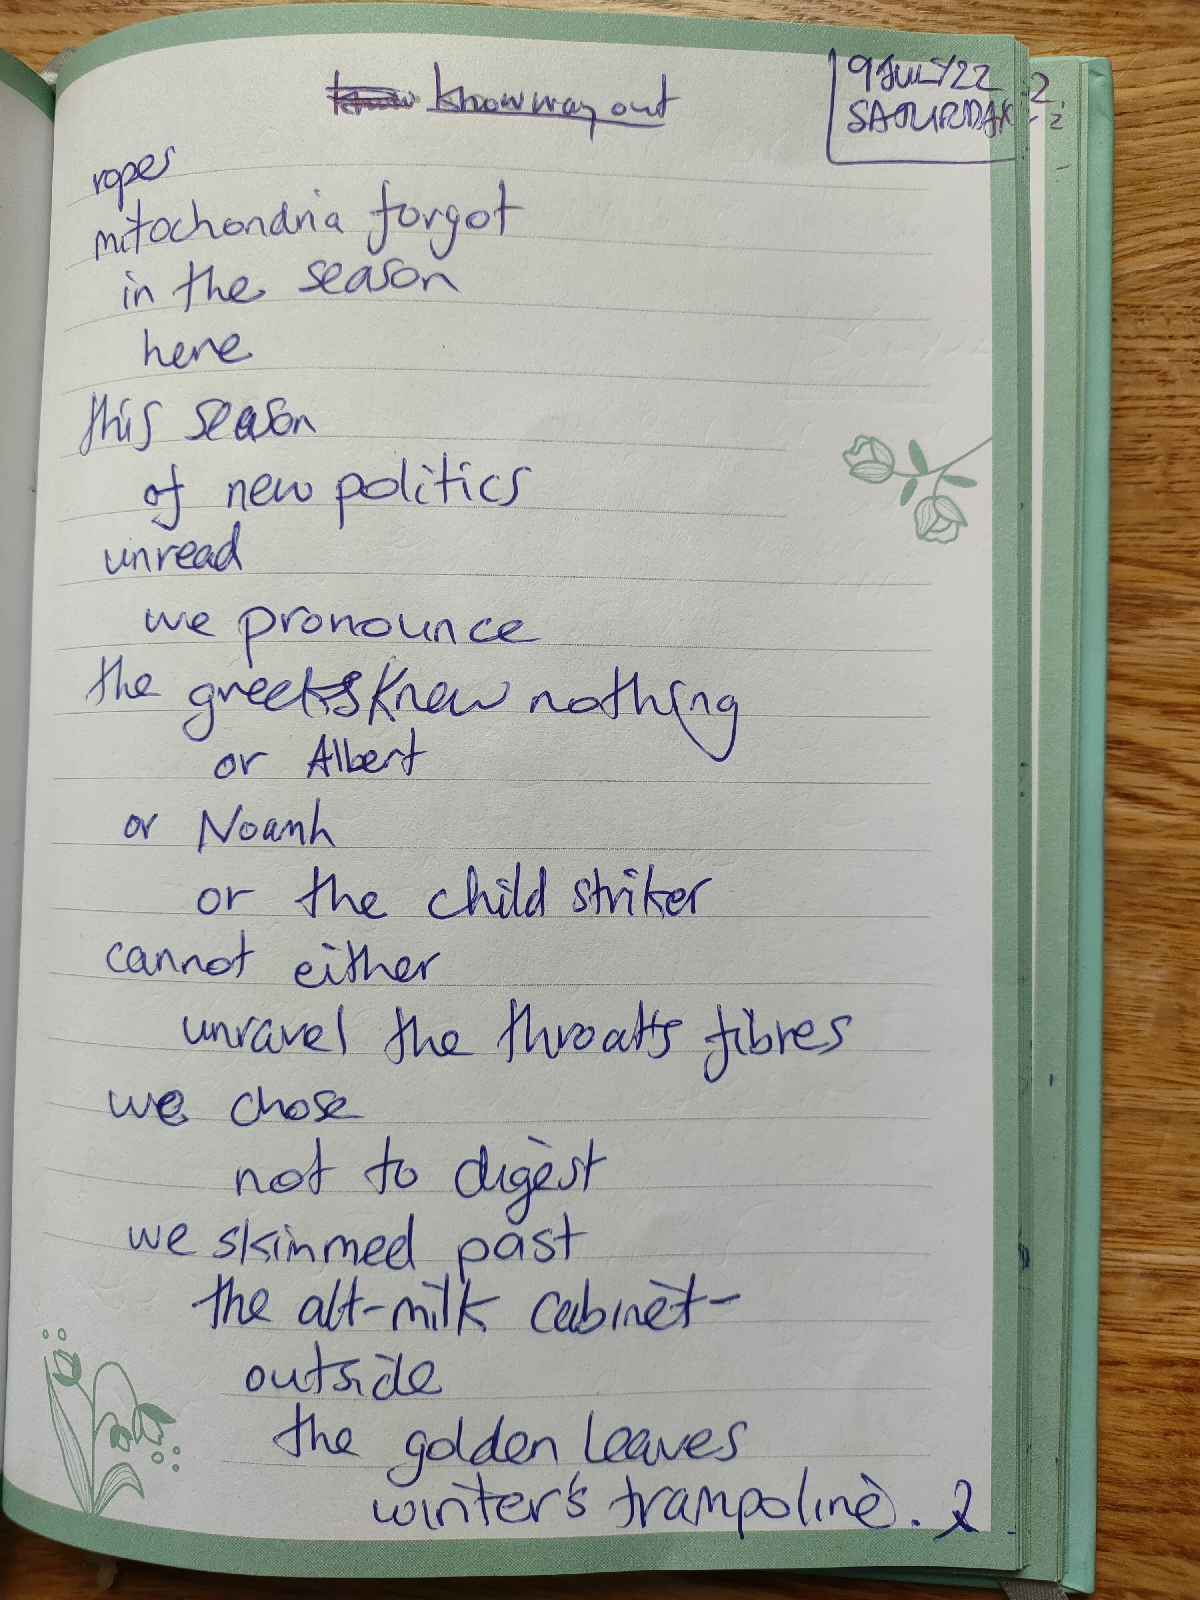 know way out
9 JULY 22
SATURDAY
ropes
mitochondria forgot
in the season
here
this season
of new politics
unread
we pronounce
the greeks knew nothing
or Albert
or Noamh
or the child striker
cannot either
unravel the throat's fibres
we chose
not to digest
we skinmed past
the alt-milk cabinet-
outside
the golden leaves
winter's trampoline. 2